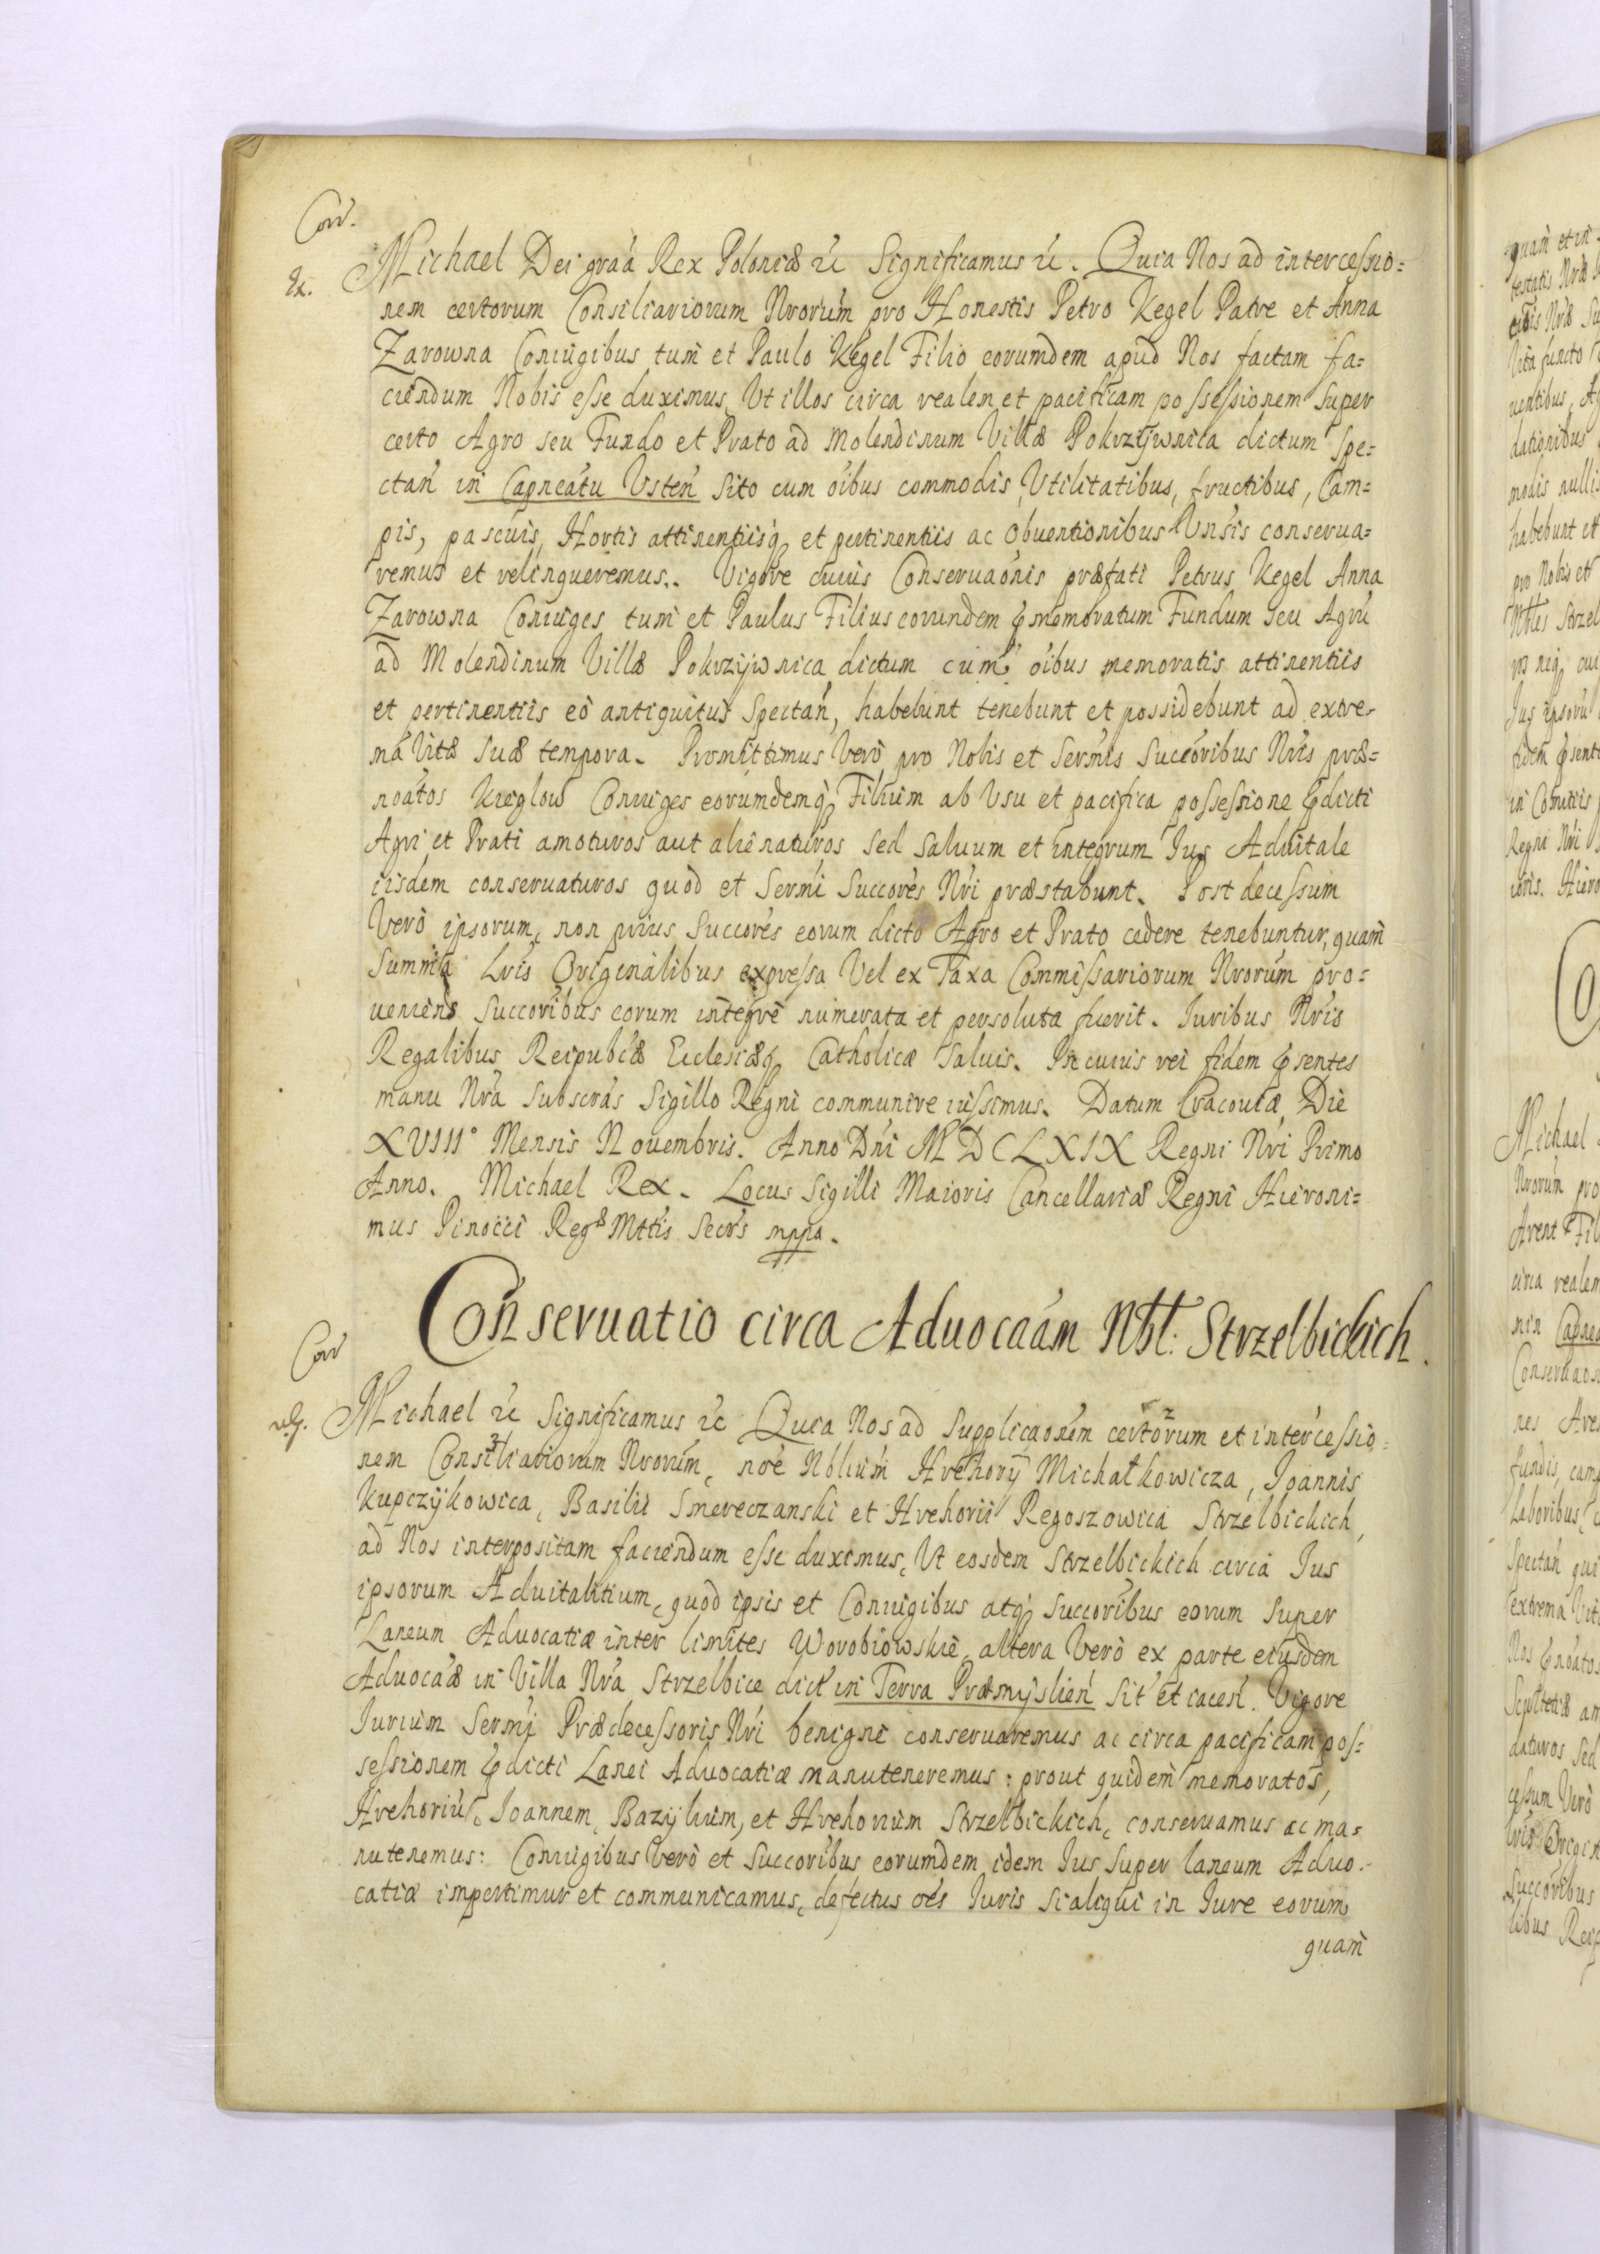 Corr.
Ex.
Michael Dei graã Rex Poloniæ etc Significamus etc. Quia Nos ad intercessio=
nem certorum Consiliariorum Nrorum pro Honestis Petro Kegel Patre et Anna
Zarowna Coniugibus tum et Paulo Kegel Filio eorumdem apud Nos factam fa=
ciendum Nobis esse duximus, Ut illos circa realem et pacificam possessionem super
certo Agro seu Fundo et Prato ad Molendinum Villæ Pokrzijwnica dictum spe=
ctań in Capneátu Usteń sito cum oibus commodis, Utilitatibus, fructibus, Cam=
pis, pascuis, Hortis attinentiisq et pertinentiis ac obuentionibus Unsis conserua=
remus et relinqueremus. Vigore cuius Conseruaõnis præfati Petrus Kegel Anna
Zarowna Coniuges tum et Paulus Filius eorundem pmemoratum Fundum seu Agrũ
ad Molendinum Villæ Pokrzijwnica dictum cum oibus memoratis attinentiis
et pertinentiis eò antiquitus spectań, habebunt tenebunt et possidebunt ad extre-
ma Vitæ suæ tempora. Promittimus Verò pro Nobis et Sermis Succoribus Nris præ=
noátos Kieglow Coniuges eorumdemq Filium ab Usu et pacifica possessione pdicti
Agri et Prati amoturos aut alienaturos sed saluum et integrum Jus Aduitale
iisdem conseruaturos quod et Sermi Succores Nri præstabunt. Post decessum
Verò ipsorum, non prius Succores eorum dicto Agro et Prato cedere tenebuntur, quam
Summa Lris Originalibus expressa Vel ex Taxa Commissariorum Nrorum pro=
ueniens Succoribus eorum integrè numerata et persoluta fuerit. Iuribus Nris
Regalibus Reipublæ Ecclesiæq Catholicæ Saluis. In cuius rei fidem psentes
manu Nra Subscras Sigillo Regni communire iussimus. Datum Cracouiæ Die
XVIII° Mensis Nouembris. Anno Dni MDCLXIX Regni Nri Primo
Anno. Michael Rex. Locus Sigilli Maioris Cancellariæ Regni Hieroni=
mus Pinocci Regæ Mttis Secrs mppa.
Conseruatio circa Aduocaám Nbl: Strzelbickich.
Corr
Michael etc Significamus etc Quia Nos ad Supplicaonem certorum et intercessio=
nem Consiliariorum Nrorum, noe Nblium Hrehorÿ Michałkowicza, Joannis
Kupczÿkowica, Basilii Smereczanski et Hrehorii Regoszowica Strzelbickich,
ad Nos interpositam faciendum esse duximus, Ut eosdem Strzelbickich circa Jus
ipsorum Aduitalitium, quod ipsis et Coniugibus atq Succoribus eorum super
Laneum Aduocatiæ inter limites Worobiowskie, altera Verò ex parte eiusdem
Aduocaæ in Villa Nra Strzelbice dict in Terra Præmÿslień Sit et iaceń. Vigore
Iurium Sermi Prædecessoris Nri benignè conseruaremus ac circa pacificam pos=
sessionem pdicti Lanei Aduocatiæ manuteneremus: prout quidem memoratos,
Hrehoriũ, Joannem, Bazÿlium, et Hrehorium Strzelbickich, conseruamus ac ma=
nutenemus: Coniugibus Verò et Succoribus eorumdem idem Jus super laneum Aduo-
catiæ impertimur et communicamus, defectus oes Iuris si aliqui in Iure eorum
quam